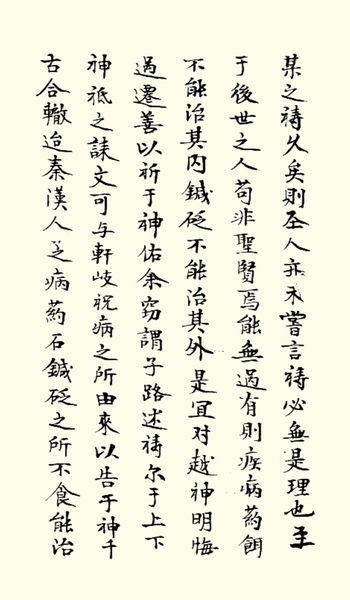 某之祷久矣則圣人亦未嘗言祷必無是理也至
于後世之人苟非聖賢焉能無過有則疾病葯餌
不能治其内鍼砭不能治其外是宜对越神明悔
過遷善以祈于神佑余窃謂子路述祷尔于上下
神祇之誄文可与軒岐祝病之所由來以告于神千
古合轍迨秦漢人之病葯石鍼砭之所不食能治